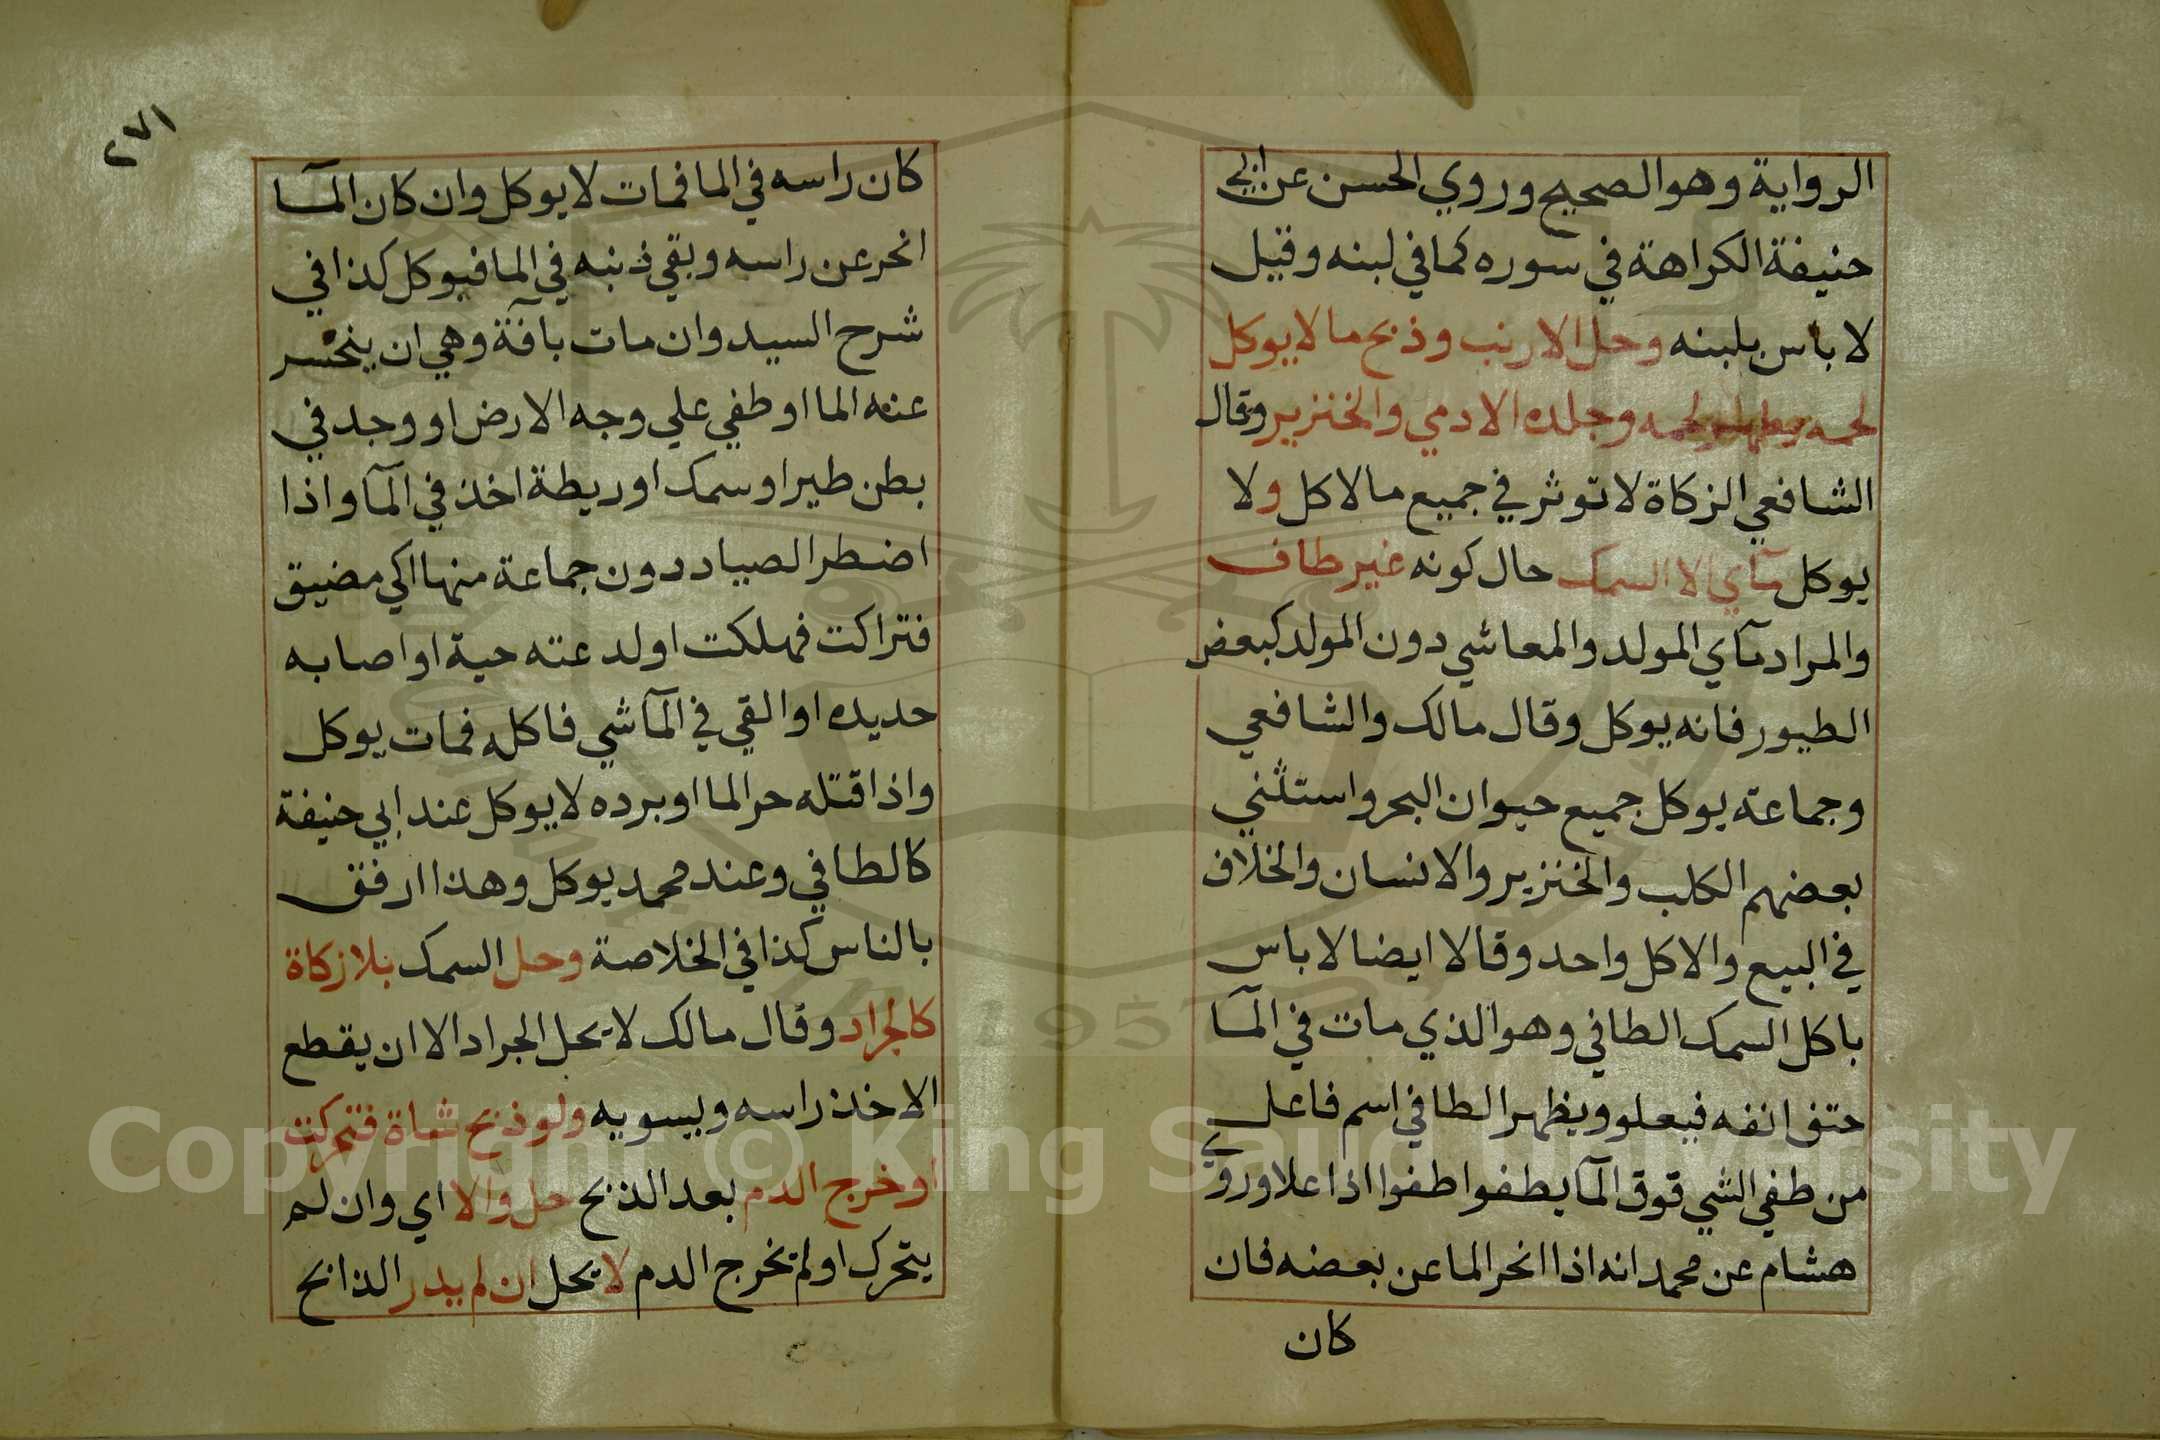 الرواية وهو الصحيح وروي الحسن عن ابي
حنيفة الكراهة في سوره كما في لبنه وقيل
لا باس بلبنه وحل الارنب وذبح ما لا يوكل
لحمه يطهر لحمه وجلده الا دمي والخنزير وقال
الشافعي الزكاة لا توثر في جميع ما لا كل ولا
يوكل مآي الا السمك حال كونه غير طاف
والمراد مآي المولد والمعاشي دون المولد كبعض
الطيور فانه يوكل وقال مالك والشافعي
وجماعة يوكل جميع حيوان البحر واستثني
بعضهم الكلب والخنزير والانسان والخلاف
في البيع والاكل واحد وقالا ايضا لا باس
باكل السمك الطافي وهو الذي مات في المآ
حتف انفه فيعلو ويظهر الطافي اسم فاعل
من طفي الشي فوق المآ يطفوا طفوا اذا علا وروي
هشام عن محمد انه اذا انحر الما عن بعضه فان
كان
٢٧١
كان راسه في الما فمات لا يوكل وان كان المآ
انحر عن راسه وبقي ذنبه في الما فيوكل كذا في
شرح السيد وان مات بافة وهي ان ينحسر
عنه الما او طفي علي وجه الارض او وجد في
بطن طير او سمك او ريطة اخذ في المآ واذا
اضطر الصياد دون جماعة منها الي مضيق
فتراكت فهلكت او لدعته حية او اصابه
حديده او القي في المآ شي فاكله فمات يوكل
واذا قتله حر الما او برده لا يوكل عند ابي حنيفة
كالطافي وعند محمد يوكل وهذا ارفق
بالناس كذا في الخلاصة وحل السمك بلا زكاة
كالجراد وقال مالك لا يحل الجراد الا ان يقطع
الاخذ راسه ويسويه ولو ذبح شاة فتحركت
او خرج الدم بعد الذبح حل والا اي وان لم
يتحرك او لم يخرج الدم لا يحل ان لم يدر الذابح
Copyright © King Saud University
1957